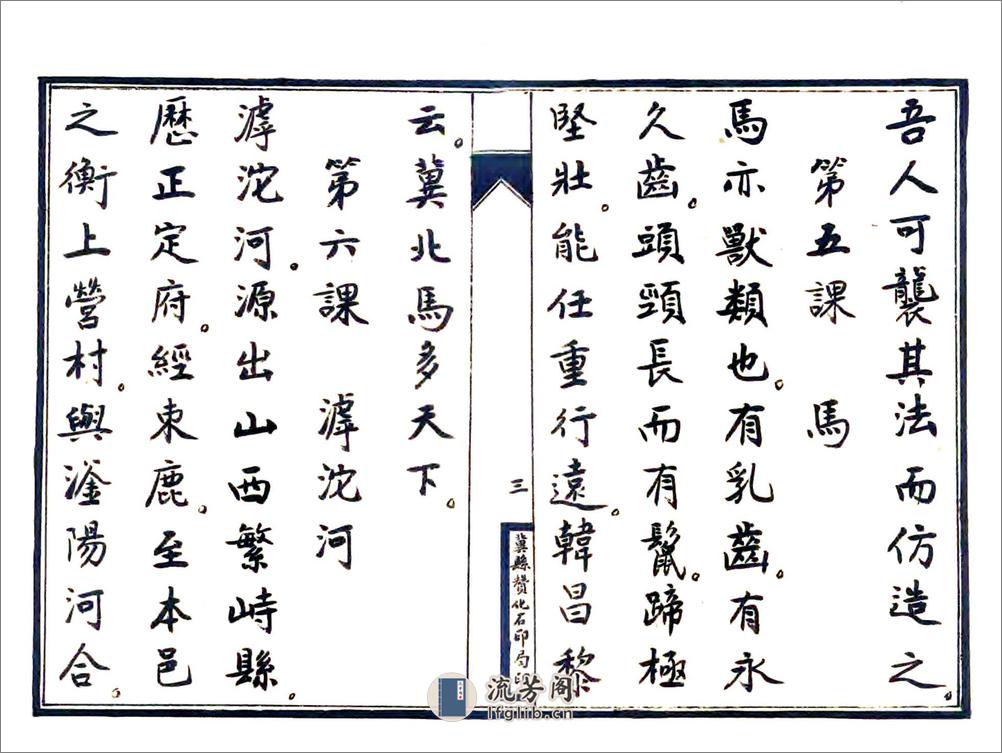 吾人可襲其法而仿造之。
第五課　馬
馬亦獸類也。有乳齒。有永
久齒。頭頸長而有鬣。蹄極
堅壯。能任重行遠。韓昌黎
三
冀縣贊化石印局印
云。冀北馬多天下。
第六課　滹沱河
滹沱河。源出山西繁峙縣。
歷正定府。經束鹿。至本邑
之衡上營村。與滏陽河合。
流芳阁
lfglib.cn